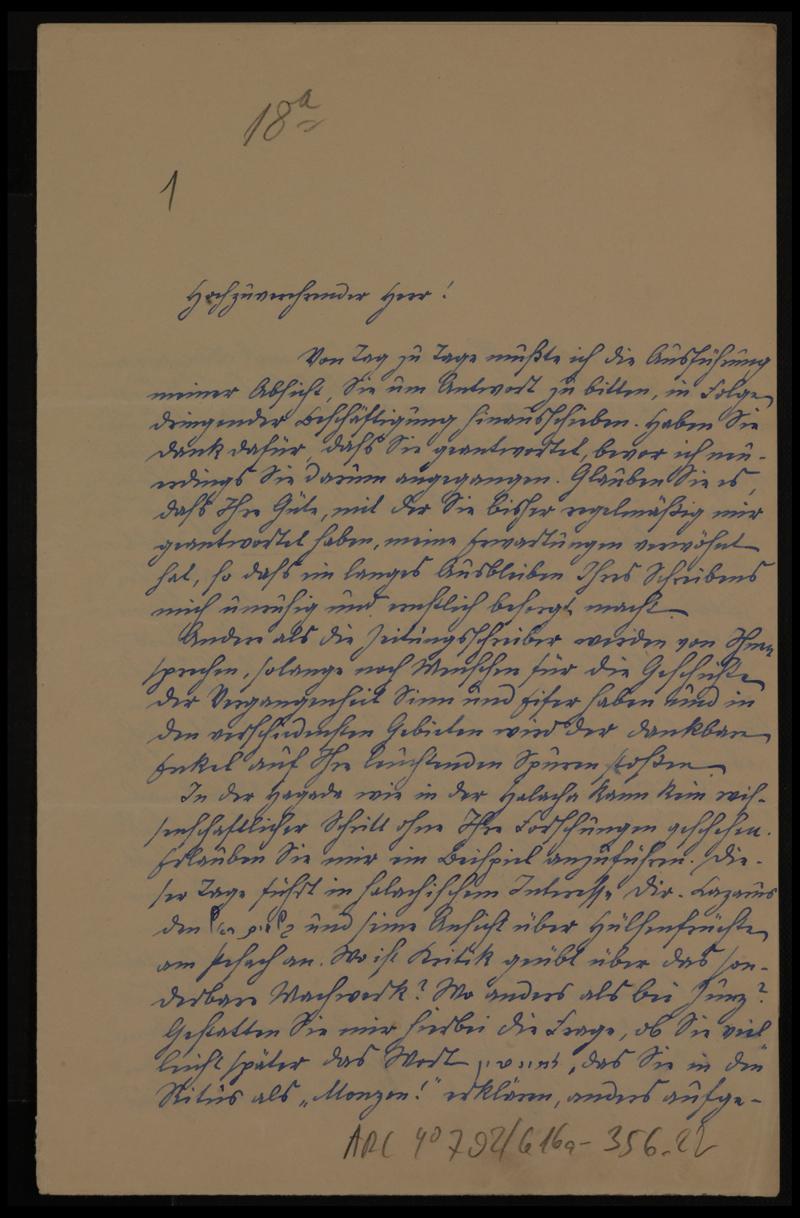 18a
1
Hochzuverehrender Herr!
Von Tag zu Tage mußte ich die Ausführung
meiner Absicht, Sie um Antwort zu bitten, in Folge
dringender Beschäftigung hinausschieben. Haben Sie
Dank dafür, daß Sie geantwortet, bevor ich neu-
erdings Sie darum angegangen. Glauben Sie es,
daß Ihre Güte, mit der Sie bisher regelmäßig mir
geantwortet haben, meine Erwartungen verwöhnt
hat, so daß ein langes Ausbleiben Ihres Schreibens
mich unruhig und ernstlich besorgt macht.
Andere als die Zeitungsschreiber werden von Ihnen
sprechen, solange noch Menschen für die Geschichte
der Vergangenheit Sinn und Eifer haben und in
den verschiedensten Gebieten wird der dankbare
Enkel auf Ihre leuchtenden Spuren stoßen.
In der Hagada wie in der Halacha kann kein wis-
senschaftlicher Schritt ohne Ihre Forschungen geschehen.
Erlauben Sie mir ein Beispiel anzuführen. Die-
ser Tage führt in halachischem Interesse Dir. Lazarus
den und seine Ansicht über Hülsenfrüchte
am Peßach an. Wo ist Kritik geübt über das son-
derbare Machwerk? Wo anders als bei Zunz?
Gestatten Sie mir hierbei die Frage, ob Sie viel
leicht später das Wort , das Sie in den
Ritus als „Monzon!" erklären, anders aufge-
ARC 4° 792/G16a-356.22